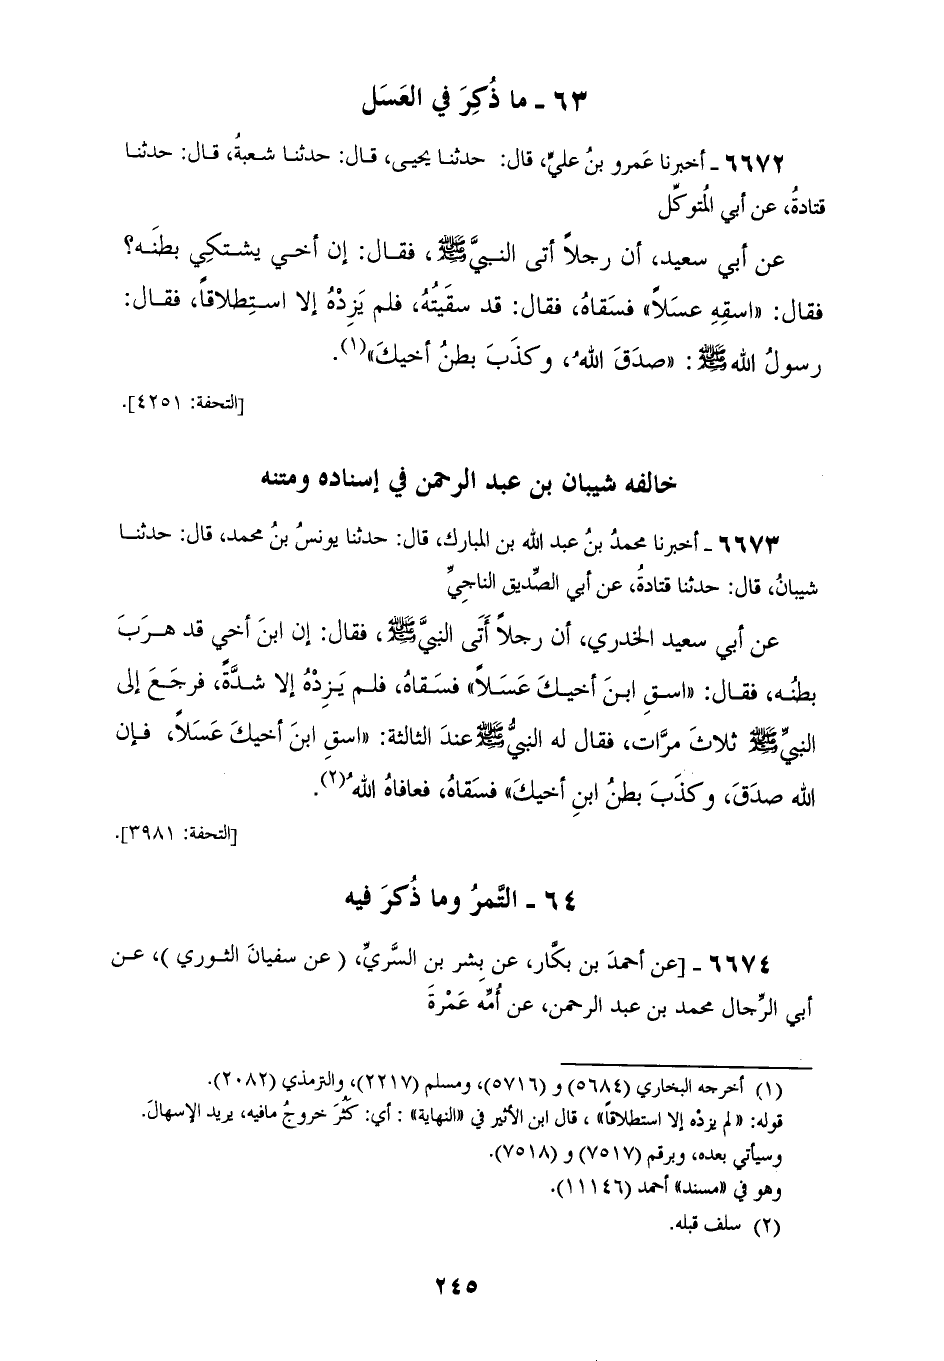 ٦٣ ـ ما ذُكِرَ في العَسَل
٦٦٧٢ ـ أخبرنا عَمرو بنُ عليٍّ، قال: حدثنا يحيى، قال: حدثنا شعبةُ، قال: حدثنا
قتادةُ، عن أبي المُتوكِّل
عن أبي سعيد، أن رجلاً أتى النبيَّ ﷺ، فقال: إن أخي يشتكِي بطنَه؟
فقال: «اسقِهِ عسَلاً» فسَقاهُ، فقال: قد سقَيتُهُ، فلم يَزِدْهُ إلا استِطلاقاً، فقال:
رسولُ الله ﷺ: «صدَقَ اللهُ، وكذَبَ بطنُ أخيكَ»(١).
[التحفة: ٤٢٥١].
خالفه شيبان بن عبد الرحمن في إسناده ومتنه
٦٦٧٣ ـ أخبرنا محمدُ بنُ عبد الله بن المبارك، قال: حدثنا يونسُ بنُ محمد، قال: حدثنا
شيبانُ، قال: حدثنا قتادةُ، عن أبي الصِّديق الناجيِّ
عن أبي سعيد الخدري، أن رجلاً أَتَى النبيَّ ﷺ، فقال: إن ابنَ أخي قد هرَبَ
بطنُه، فقال: «اسقِ ابنَ أخيكَ عَسَلاً» فسَقاهُ، فلم يَزِدْهُ إلا شدَّةً، فرجَعَ إلى
النبيِّ ﷺ ثلاثَ مرَّات، فقال له النبيُّ ﷺ عندَ الثالثة: «اسقِ ابنَ أخيكَ عَسَلاً، فإن
الله صدَقَ، وكذَبَ بطنُ ابنِ أخيكَ» فسَقاهُ، فعافاهُ اللهُ(٢).
[التحفة: ٣٩٨١].
٦٤ ـ التَّمرُ وما ذُكرَ فيه
٦٦٧٤ ـ [عن أحمدَ بن بكَّار، عن بِشر بن السَّريِّ، ( عن سفيانَ الثوري )، عن
أبي الرِّجال محمد بن عبد الرحمن، عن أُمِّه عَمْرةَ
(١) أخرجه البخاري (٥٦٨٤) و (٥٧١٦)، ومسلم (٢٢١٧)، والترمذي (٢٠٨٢).
قوله: «لم يزدْه إلا استطلاقاً» ، قال ابن الأثير في «النهاية» : أي: كَثُرَ خروجُ مافيه، يريد الإسهالَ.
وسيأتي بعده، وبرقم (٧٥١٧) و (٧٥١٨).
وهو في «مسند» أحمد (١١١٤٦).
(٢) سلف قبله.
٢٤٥